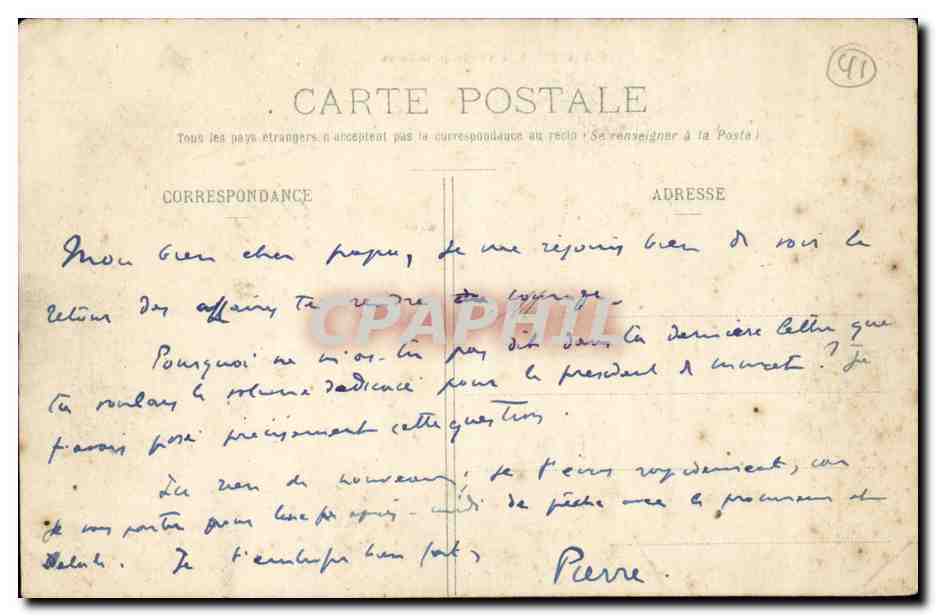 41
CARTE POSTALE
Tous les pays étrangers n'acceptent pas la correspondance au recto (Se renseigner à la Poste)
CORRESPONDANCE
ADRESSE
Mon bien cher papa, je me réjouis bien de voir le
retour des affaires te rendre courage.
CPAPHIL
Pourquoi ne m'as-tu pas dit dans ta dernière lettre que
tu voulais le volume dédicacé pour le président de ? Je
t'avais posé précisément cette question.
Ici rien de nouveau; je t'écris rapidement, car
je vais partir pour après-midi de pêche avec le procureur et
. Je t'embrasse bien fort,
Pierre.